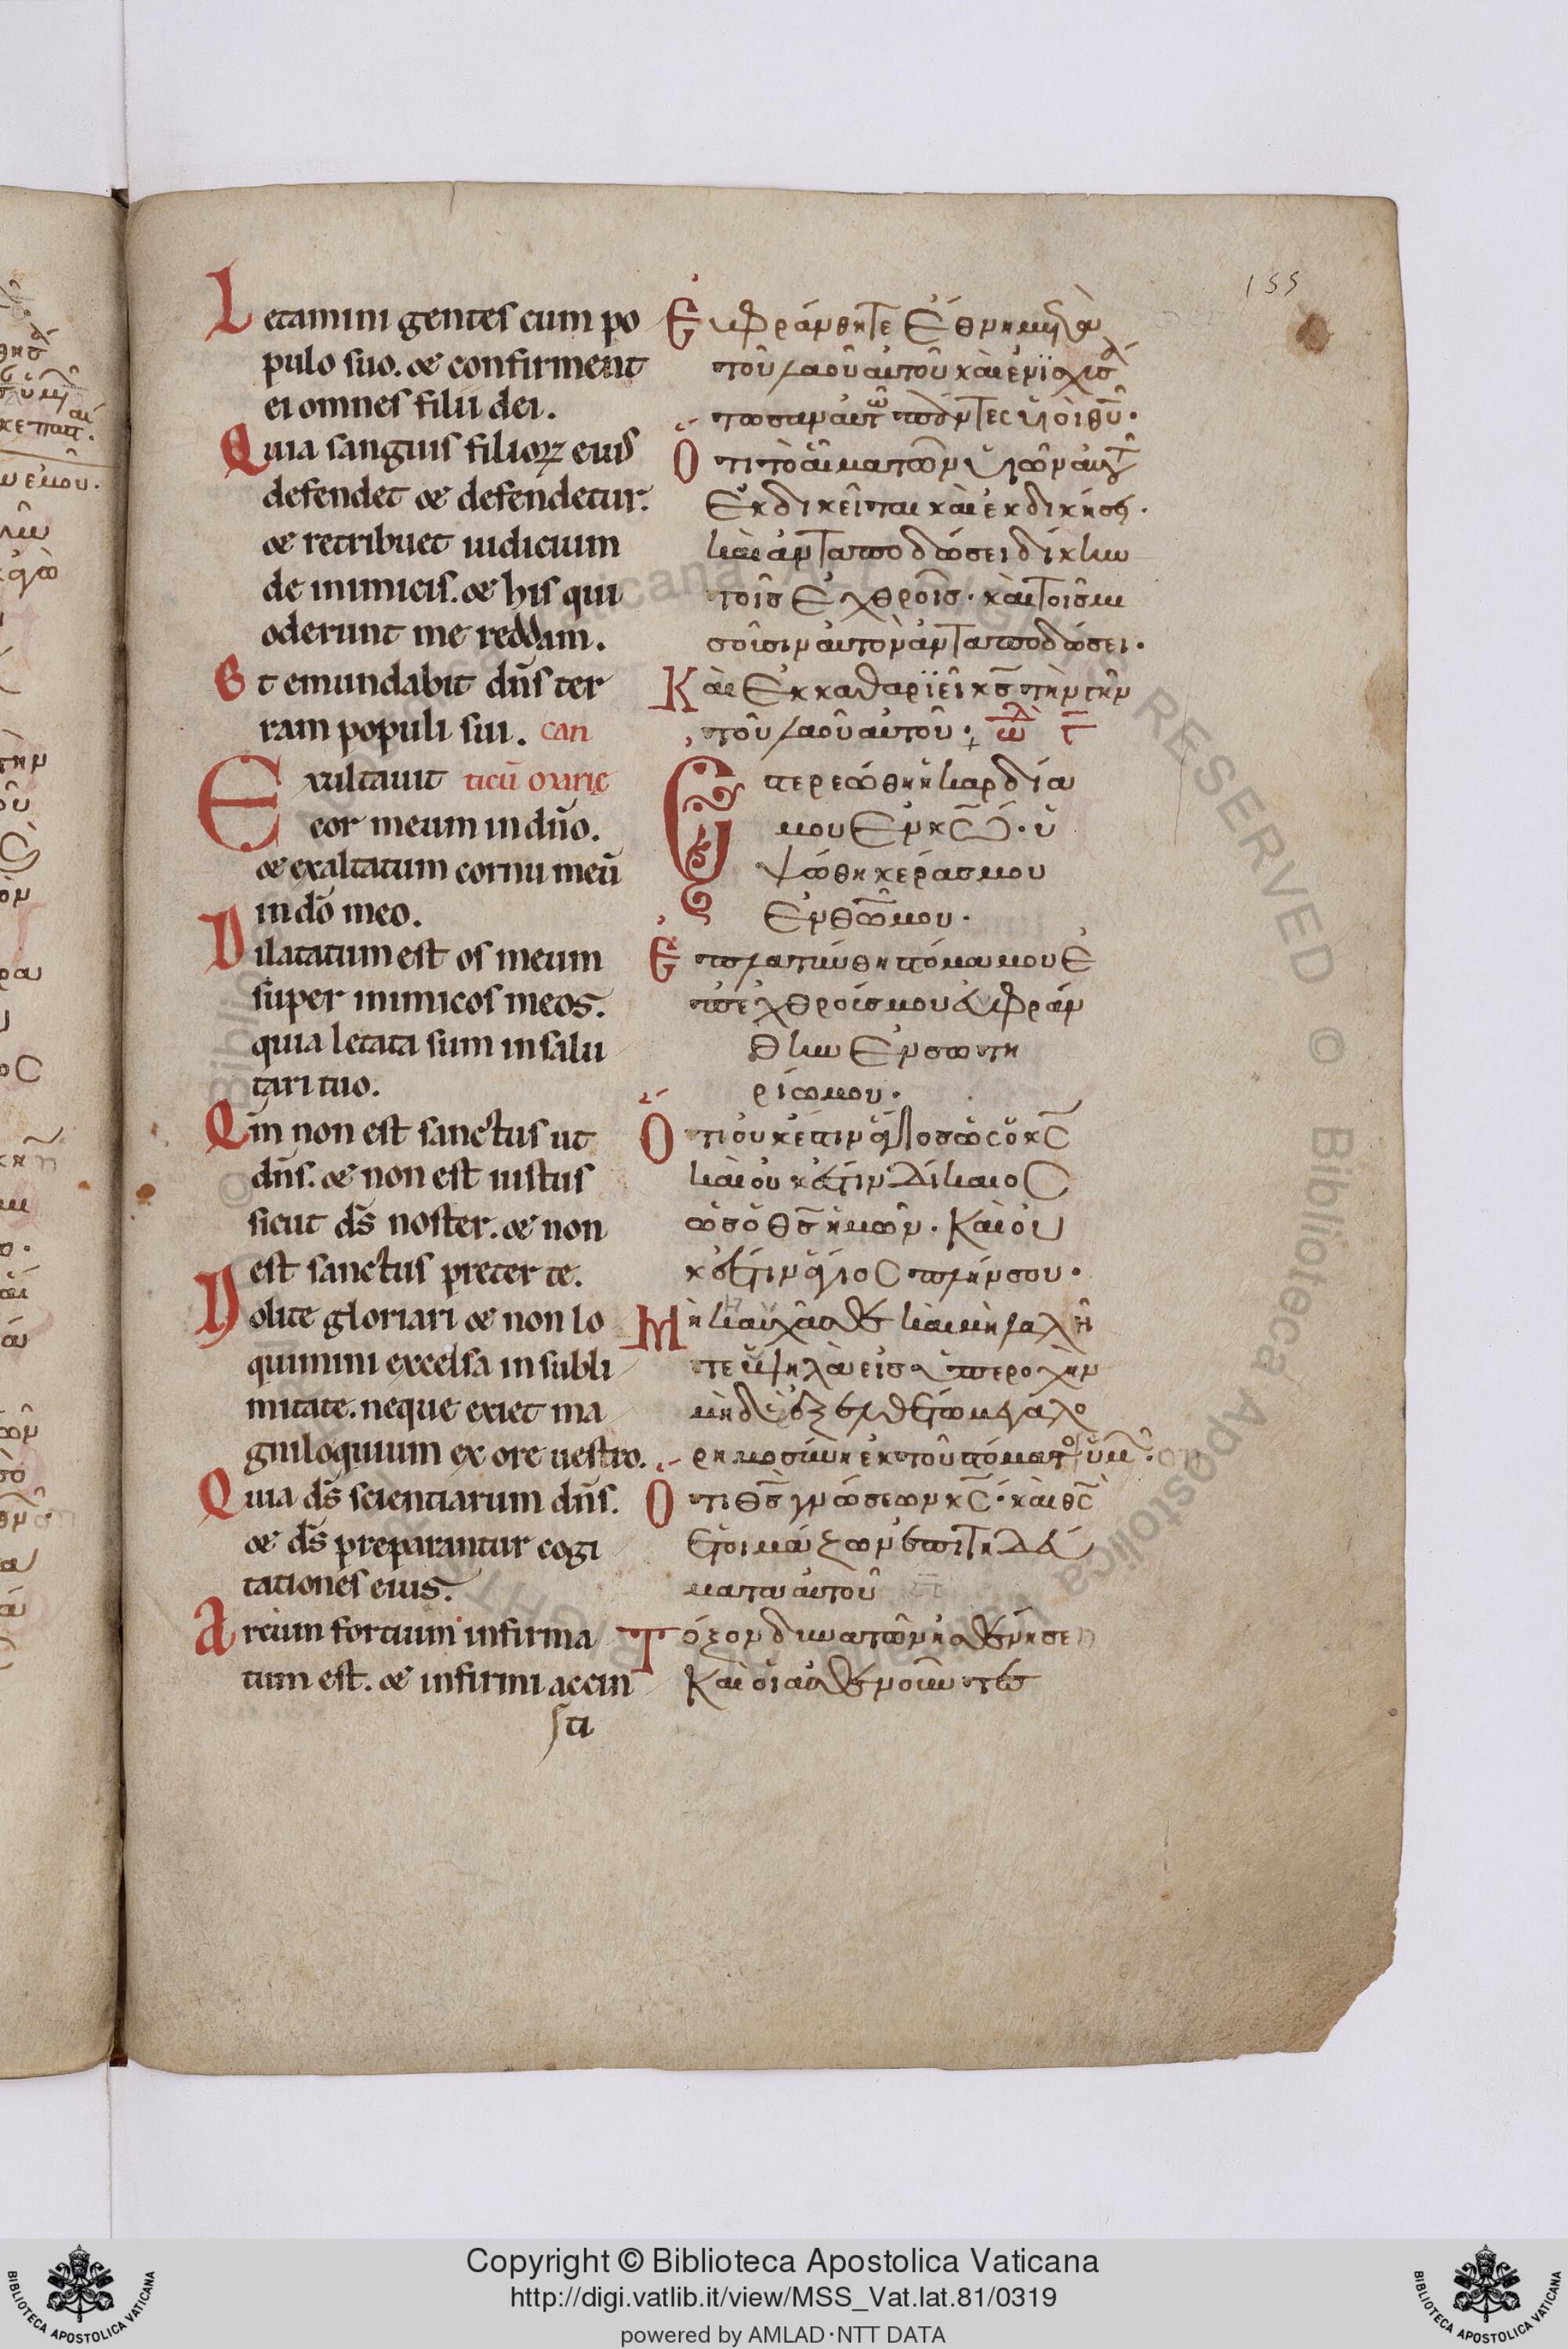 155
Letamini gentes cum po
pulo suo. & confirment
ei omnes filii dei.
Quia sanguis filioꝝ eius
defendet & defendetur.
& retribuet iudicium
de inimicis. & his qui
oderunt me reddam.
Et emundabit dn̄s ter
ram populi sui. can
Exultauit ticū oxarię
cor meum in dn̄o.
& exaltatum cornu meū
in dō meo.
Dilatatum est os meum
super inimicos meos.
quia letata sum in salu
tari tuo.
Qm̄ non est sanctus ut
dn̄s. & non est iustus
sicut ds̄ noster. & non
est sanctus preter te.
Nolite gloriari & non lo
quimini excelsa in subli
mitate. neque exiet ma
gniloquium ex ore uestro.
Quia ds̄ scientiarum dn̄s.
& ds̄ preparantur cogi
tationes eius.
Arcum fortium infirma
tum est. & infirmi accin
sti
Ἐυφράνθητε ἔθνη μετὰ
τοῦ λαοῦ αυτοῦ κὰι ἐνϊσχυσ
άτωσαν αυτῶ πάντες υἱὸι θῦ.
Ὅτι τὸ ἆιμα τῶν υἱῶν αυτοῦ
Ἐκδικεῖται κὰι ἐκδικήσει.
κὰι ἀνταποδώσει δίκην
τοῖσ Ἐχθροῖσ. κὰι τοῖσ μι
σοῦσιν αυτὸν ἀνταποδώσει.
Κὰι Ἐκκαθαρϊεῖ κ̄σ τὴν γῆν
τοῦ λαοῦ αυτοῦ. ὠδὴ γ̄
Ἐστερεώθη ἡ καρδία
μου Ἐν κ̄ω. ὑ
ψώθη κέρασ μου
Ἐν θ̄ῶ μου.
Ἐπλατύνθη στόμα μου Ἐ
π' ἐχθρούσ μου ἐυφράν
θην Ἐν σωτη
ρίω μου.
Ὅτι οὐκ ἔστιν ἅγιοσ ὡς ὁ κ̄ς
κὰι ουκ ἔστιν δίκαιος
ὡσ ὁ θ̄σ ἡμῶν. Κὰι ου
κ ἔστιν ἅγιος πλήν σου.
Μὴ καυχᾶσθε κὰι μὴ λαλεῖ
τε ὑψηλὰ εἰσ ὑπεροχὴν
μὴδὲ ἐξελθέτω μεγαλο
ρημοσύνη ἐκ τοῦ στόματος ὑμῶν.
Ὅτι θ̄σ γνώσεων κ̄ς. κὰι θ̄ς
Ἑτοιμάζων ἐπιτηδέυ
ματα αυτοῦ
Τόξον δυνατῶν ἠσθένησεν
Κὰι ὁι ἀσθενοῦντεσ
Copyright © Biblioteca Apostolica Vaticana
http://digi.vatlib.it/view/MSS_Vat.lat.81/0319
powered by AMLAD·NTT DATA